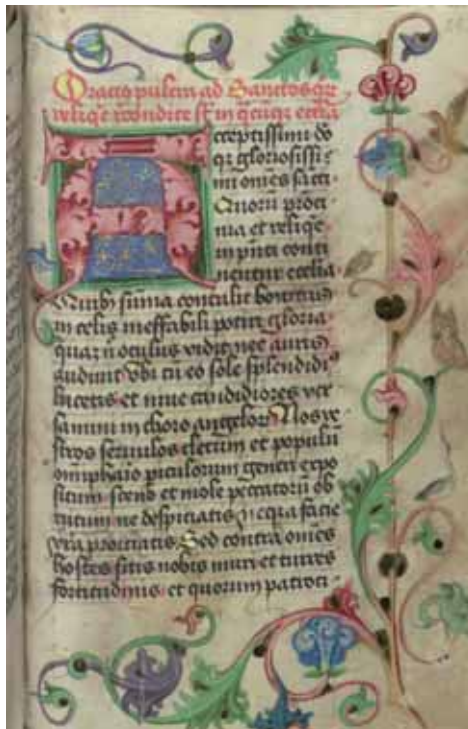 Oratio pulcra ad Sanctos qr̄
reliq̄e recondite st̄ in ecclīa
Acceptissimi do
qȝ gloriosissi
mi om̄es sancti
Quorū
nia et reliq̄e
in pn̄ti conti
nentur ecclīa
Quibȝ sūma contulit bonitas
in celis ineffabili potiri gloria
quaȝ n̄ oculus vidit nec auris
audiuit Vbi tū eo sole splendidiꝰ
lucetis et niue candidiores
in choro angeloꝝ Nos ve
stros seruulos clerum et populū
periculorum generi expo
situm et mole peccatorū ob
rutum ne despiciatis facie
vr̄a proiciatis Sed contra om̄es
hostes sitis nobis muri et turres
fortitudinis et quorum patroci